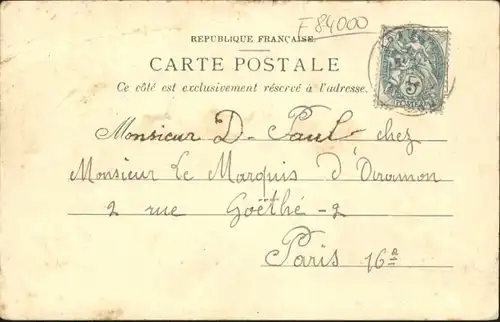 F 84000
REPUBLIQUE FRANÇAISE.
CARTE POSTALE
Ce côté est exclusivement réservé à l'adresse.
5
Monsieur D- Paul chez
Monsieur Le Marquis d'Oramon
2 rue Goëthé - 2
Paris 16e